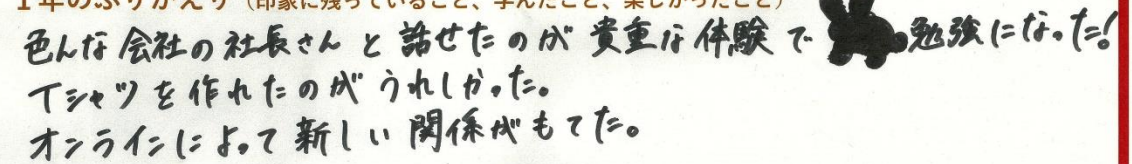 1年のふりかえり（印象に残っていること、学んだこと、楽しかったこと）
色んな会社の社長さんと話せたのが貴重な体験で勉強になった!
Tシャツを作れたのがうれしかった。
オンラインによって新しい関係がもてた。